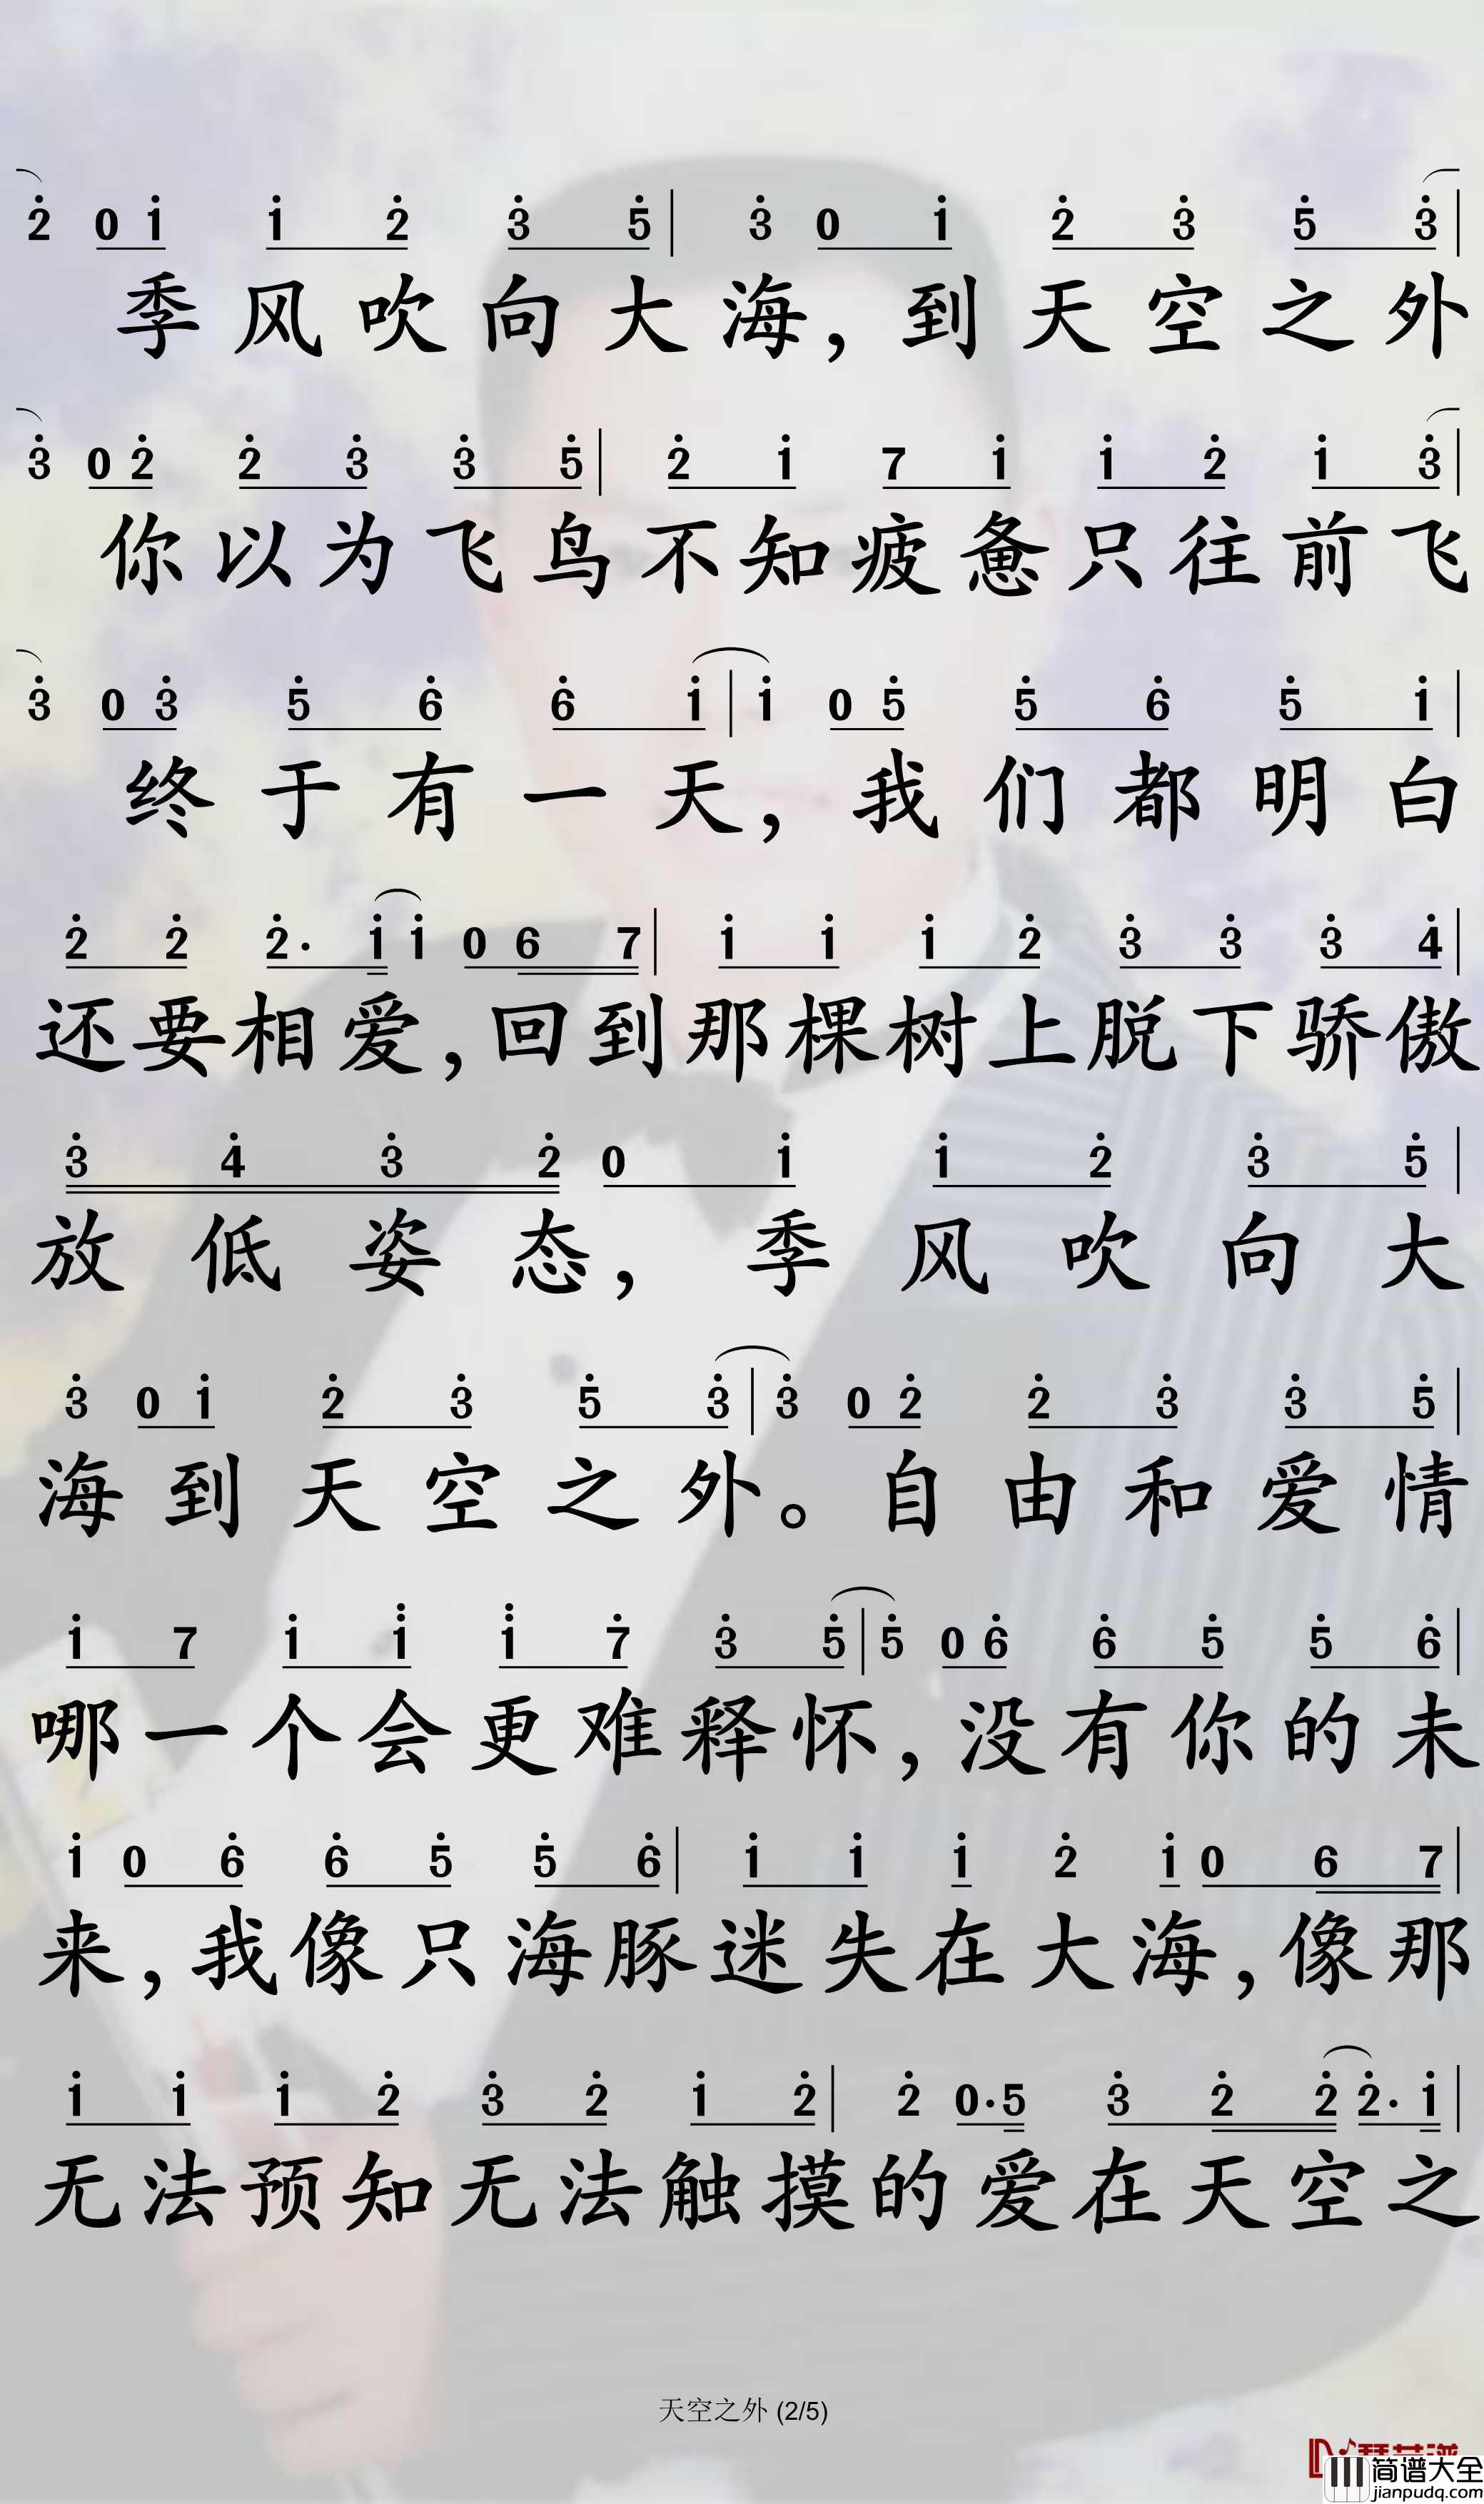 2 0 1 1 2 3 5 | 3 0 1 2 3 5 3 |
季风吹向大海，到天空之外
3 0 2 2 3 3 5 | 2 1 7 1 1 2 1 3 |
你以为飞鸟不知疲惫只往前飞
3 0 3 5 6 6 1 | 1 0 5 5 6 5 1 |
终于有一天，我们都明白
2 2 2· 1 1 0 6 7 | 1 1 1 2 3 3 3 4 |
还要相爱，回到那棵树上脱下骄傲
3 4 3 2 0 1 1 2 3 5 |
放低姿态，季风吹向大
3 0 1 2 3 5 3 | 3 0 2 2 3 3 5 |
海到天空之外。自由和爱情
1 7 1 1 1 7 3 5 | 5 0 6 6 5 5 6 |
哪一个会更难释怀，没有你的未
1 0 6 6 5 5 6 | 1 1 1 2 1 0 6 7 |
来，我像只海豚迷失在大海，像那
1 1 1 2 3 2 1 2 | 2 0·5 3 2 2 2· 1 |
无法预知无法触摸的爱在天空之
天空之外 (2/5)
简谱大全
jianpudq.com